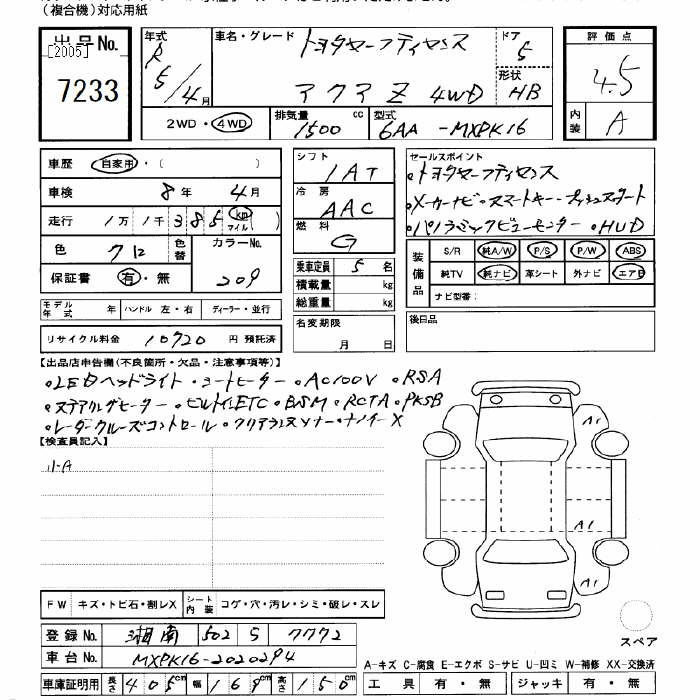 (複合機)対応用紙
出品No. [2005] 7233
年式 R 5/4月
車名・グレード トヨタセーフティセンス アクア Z 4WD
ドア 5
形状 HB
評価点 4.5
内装 A
2WD・4WD
排気量 1500 cc
型式 6AA-MXPK16
車歴 自家用・( )
車検 8年 4月
走行 1万 1千 3 8 5 km マイル ( )
色 クロ 色替 カラーNo. 209
保証書 有・無
モデル年式 年 ハンドル 左・右 ディーラー・並行
リサイクル料金 10720 円 預託済
シフト IAT
冷房 AAC
燃料 G
乗車定員 5 名
積載量 kg
総重量 kg
名変期限 月 日
セールスポイント
•トヨタセーフティセンス
•メーカーナビ•スマートキー•プッシュスタート
•パノラミックビューモニター •HUD
装備品 S/R 純A/W P/S P/W ABS
純TV 純ナビ 革シート 外ナビ エアB
ナビ型番:
後日品
【出品店申告欄(不良箇所・欠品・注意事項等)】
•LEDヘッドライト •シートヒーター •AC100V •RSA
•ステアリングヒーター •ビルトインETC •BSM •RCTA •PKSB
•レーダークルーズコントロール •クリアランスソナー •ナノイーX
【検査員記入】
小A
A1
A1
A1
FW キズ・トビ石・割レX シート内装 コゲ・穴・汚レ・シミ・破レ・スレ
登録No. 湘南 502 S 7772
車台No. MXPK16-2020294
車庫証明用 長さ 405cm 幅 169cm 高さ 150cm
スペア
A-キズ C-腐食 E-エクボ S-サビ U-凹ミ W-補修 XX-交換済
工具 有・無 ジャッキ 有・無